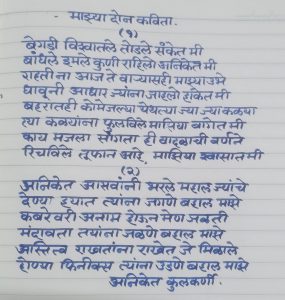 - माझ्या दोन कविता.
(१)
बेगडी विश्वातले तोडले संकेत मी
बांधले इमले कुणी राहिलो अनिकेत मी
राहती ना आज ते वाऱ्यासही माझ्या उभे
धावूनी आधार ज्यांना जाहलो हाकेत मी
बहरातही कोमेजल्या येथल्या ज्या ज्या कळ्या
त्या कळ्यांना फुलविले माझिया बागेत मी
काय मजला सांगता ही वादळाची वर्णने
रिचविले तूफान आहे, माझिया श्वासात मी
(२)
अनिकेत आसवांनी भरले मराल ज्यांचे
देण्या त्यांना जगणे बराल माझे
कबरेवरी अनाम होऊन मेण जळती
मंदावता तयांना जळणे बराल माझे
अस्तित्व राखतांना राखेत जे मिळाले
होण्या फिनीक्स त्यांना उडणे बराल माझे
अनिकेत कुलकर्णी.